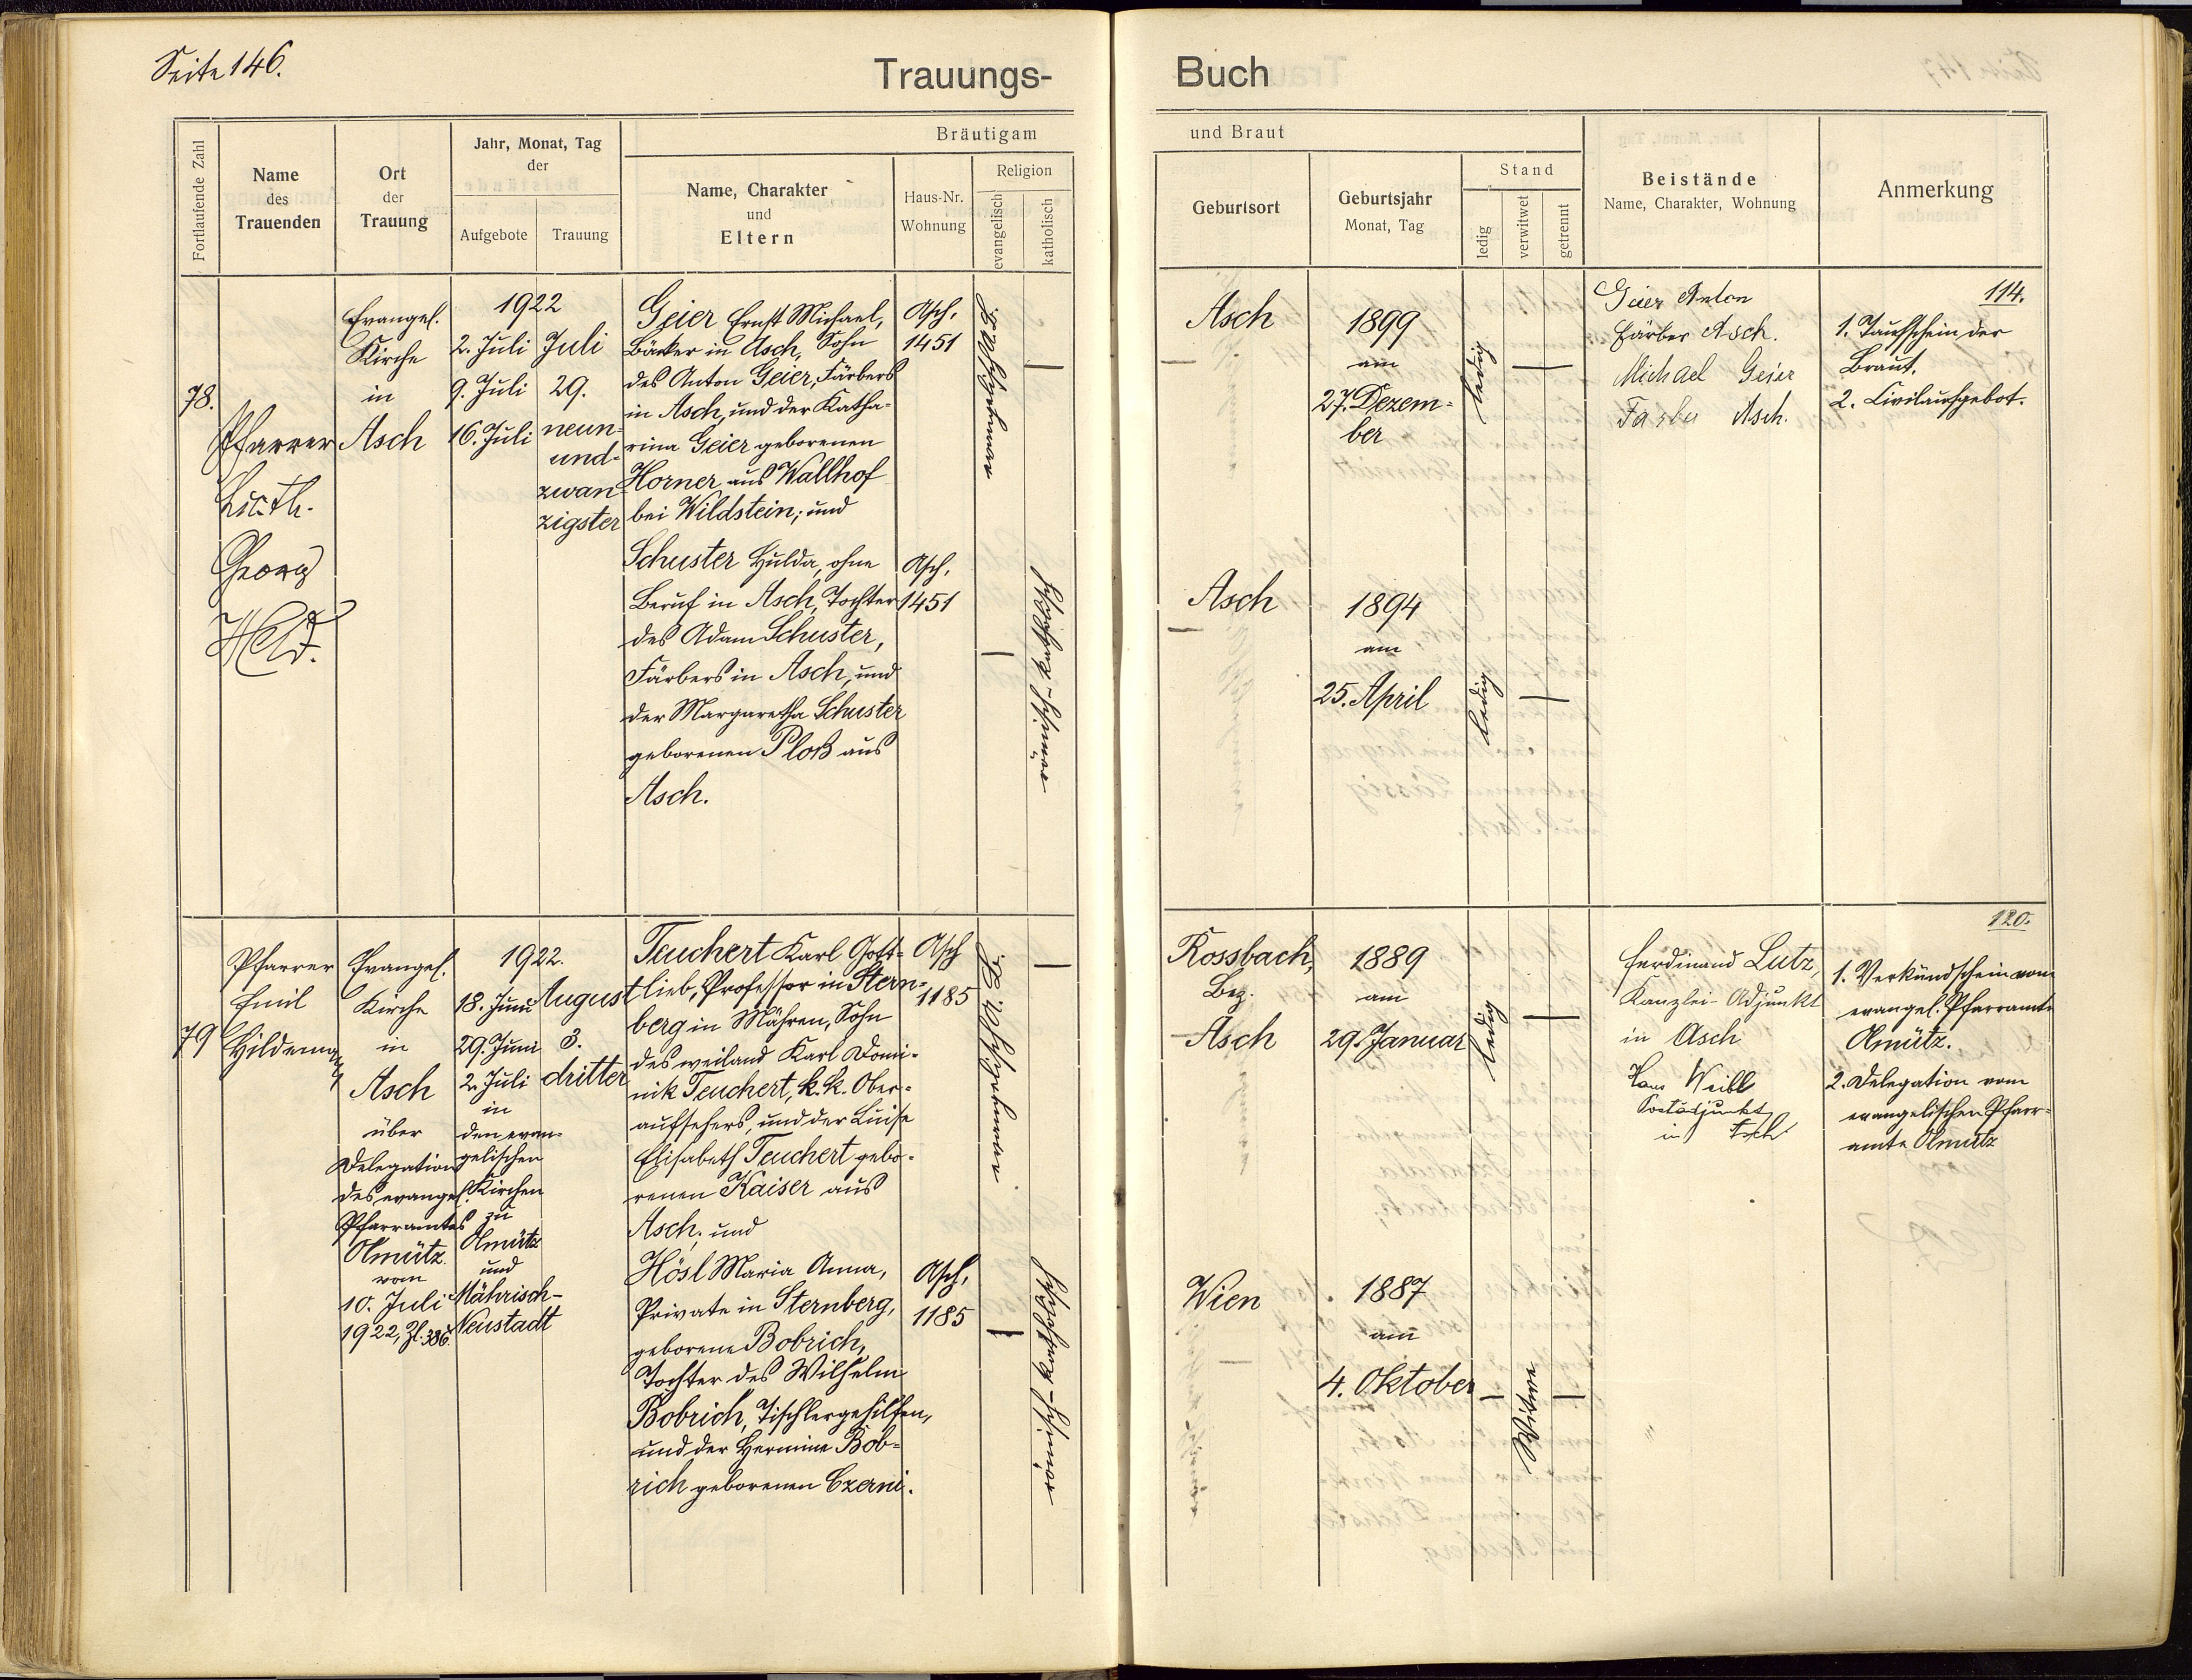 Seite 146.
Trauungs-
Buch
Fortlaufende Zahl
Name
des
Trauenden
Ort
der
Trauung
Jahr, Monat, Tag
der
Aufgebote
Trauung
Bräutigam
Name, Charakter
und
Eltern
Haus-Nr.
Wohnung
Religion
evangelisch
katholisch
und Braut
Geburtsort
Geburtsjahr
Monat, Tag
Stand
ledig
verwitwet
getrennt
Beistände
Name, Charakter, Wohnung
Anmerkung
78.
Pfarrer
Lic. Th.
Georg
Held.
Evangel.
Kirche
in
Asch
1922
2. Juli
9. Juli
16. Juli
Juli
29.
neun-
und-
zwan
zigster
Geier Ernst Michael,
Bäcker in Asch, Sohn
des Anton Geier, Färbers
in Asch, und der Katha-
rina Geier geborenen
Horner aus Wallhof
bei Wildstein; und
Asch,
1451
Schuster Hulda, ohne
Beruf in Asch, Tochter
des Adam Schuster,
Färbers in Asch, und
der Margaretha Schuster
geborenen Ploß aus
Asch.
Asch,
1451
römisch-katholisch
Asch
1899
am
27. Dezem-
ber
ledig
Asch
1894
am
25. April
ledig
Geier Anton
Färber Asch.
Michael Geier
Färber Asch.
114.
1. Taufschein der
Braut.
2. Civilaufgebot.
79
Pfarrer
Emil
Hildemann
Evangel.
Kirche
in
Asch
über
Delegation
des evangel.
Pfarramtes
Olmütz
vom
10. Juli
1922, Zl. 386.
1922.
18. Juni
29. Juni
2. Juli
in
den evan-
gelischen
Kirchen
zu
Olmütz
und
Mährisch-
Neustadt
August
3.
dritter
Teuchert Karl Gott-
lieb, Professor in Stern-
berg in Mähren, Sohn
des weiland Karl Domi-
nik Teuchert, k. k. Ober-
aufsehers, und der Luise
Elisabeth Teuchert gebo-
renen Kaiser aus
Asch; und
Asch
1185
Hösl Maria Anna,
Private in Sternberg,
geborene Bobrich,
Tochter des Wilhelm
Bobrich, Tischlergehilfen,
und der Hermine Bob-
rich geborenen Czerni.
Asch,
1185
römisch-katholisch
Rossbach,
Bez.
Asch
1889
am
29. Januar
ledig
Wien
1887
am
4. Oktober
Witwe
Ferdinand Lutz,
Kanzlei-Adjunkt
in Asch
Hans Weibl
Postadjunkt
in Asch
120.
1. Verkündschein vom
evangel. Pfarramte
Olmütz.
2. Delegation vom
evangelischen Pfarr-
amte Olmütz